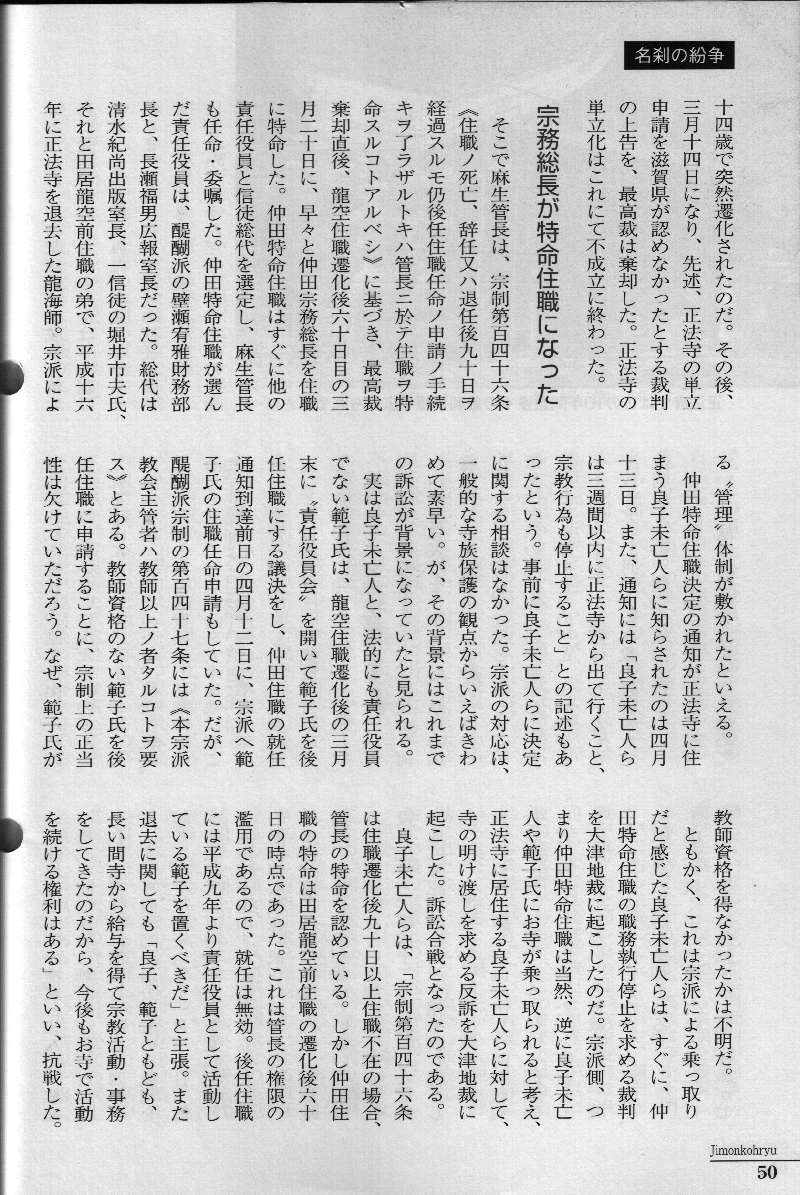 名刹の紛争
十四歳で突然遷化されたのだ。その後、
三月十四日になり、先述、正法寺の単立
申請を滋賀県が認めなかったとする裁判
の上告を、最高裁は棄却した。正法寺の
単立化はこれにて不成立に終わった。
宗務総長が特命住職になった
そこで麻生管長は、宗制第百四十六条
《住職ノ死亡、辞任又ハ退任後九十日ヲ
経過スルモ仍後任住職任命ノ申請ノ手続
キヲ了ラザルトキハ管長ニ於テ住職ヲ特
命スルコトアルベシ》に基づき、最高裁
棄却直後、龍空住職遷化後六十日目の三
月二十日に、早々と仲田宗務総長を住職
に特命した。仲田特命住職はすぐに他の
責任役員と信徒総代を選定し、麻生管長
も任命・委嘱した。仲田特命住職が選ん
だ責任役員は、醍醐派の壁瀬宥雅財務部
長と、長瀬福男広報室長だった。総代は
清水紀尚出版室長、一信徒の堀井市夫氏、
それと田居龍空前住職の弟で、平成十六
年に正法寺を退去した龍海師。宗派によ
る〝管理〟体制が敷かれたといえる。
仲田特命住職決定の通知が正法寺に住
まう良子未亡人らに知らされたのは四月
十三日。また、通知には「良子未亡人ら
は三週間以内に正法寺から出て行くこと、
宗教行為も停止すること」との記述もあ
ったという。事前に良子未亡人らに決定
に関する相談はなかった。宗派の対応は、
一般的な寺族保護の観点からいえばきわ
めて素早い。が、その背景にはこれまで
の訴訟が背景になっていたと見られる。
実は良子未亡人と、法的にも責任役員
でない範子氏は、龍空住職遷化後の三月
末に〝責任役員会〟を開いて範子氏を後
任住職にする議決をし、仲田住職の就任
通知到達前日の四月十二日に、宗派へ範
子氏の住職任命申請もしていた。だが、
醍醐派宗制の第百四十七条には《本宗派
教会主管者ハ教師以上ノ者タルコトヲ要
ス》とある。教師資格のない範子氏を後
任住職に申請することに、宗制上の正当
性は欠けていただろう。なぜ、範子氏が
教師資格を得なかったかは不明だ。
ともかく、これは宗派による乗っ取り
だと感じた良子未亡人らは、すぐに、仲
田特命住職の職務執行停止を求める裁判
を大津地裁に起こしたのだ。宗派側、つ
まり仲田特命住職は当然、逆に良子未亡
人や範子氏にお寺が乗っ取られると考え、
正法寺に居住する良子未亡人らに対して、
寺の明け渡しを求める反訴を大津地裁に
起こした。訴訟合戦となったのである。
良子未亡人らは、「宗制第百四十六条
は住職遷化後九十日以上住職不在の場合、
管長の特命を認めている。しかし仲田住
職の特命は田居龍空前住職の遷化後六十
日の時点であった。これは管長の権限の
濫用であるので、就任は無効。後任住職
には平成九年より責任役員として活動し
ている範子を置くべきだ」と主張。また
退去に関しても「良子、範子ともども、
長い間寺から給与を得て宗教活動・事務
をしてきたのだから、今後もお寺で活動
を続ける権利はある」といい、抗戦した。
Jimonkohryu
50